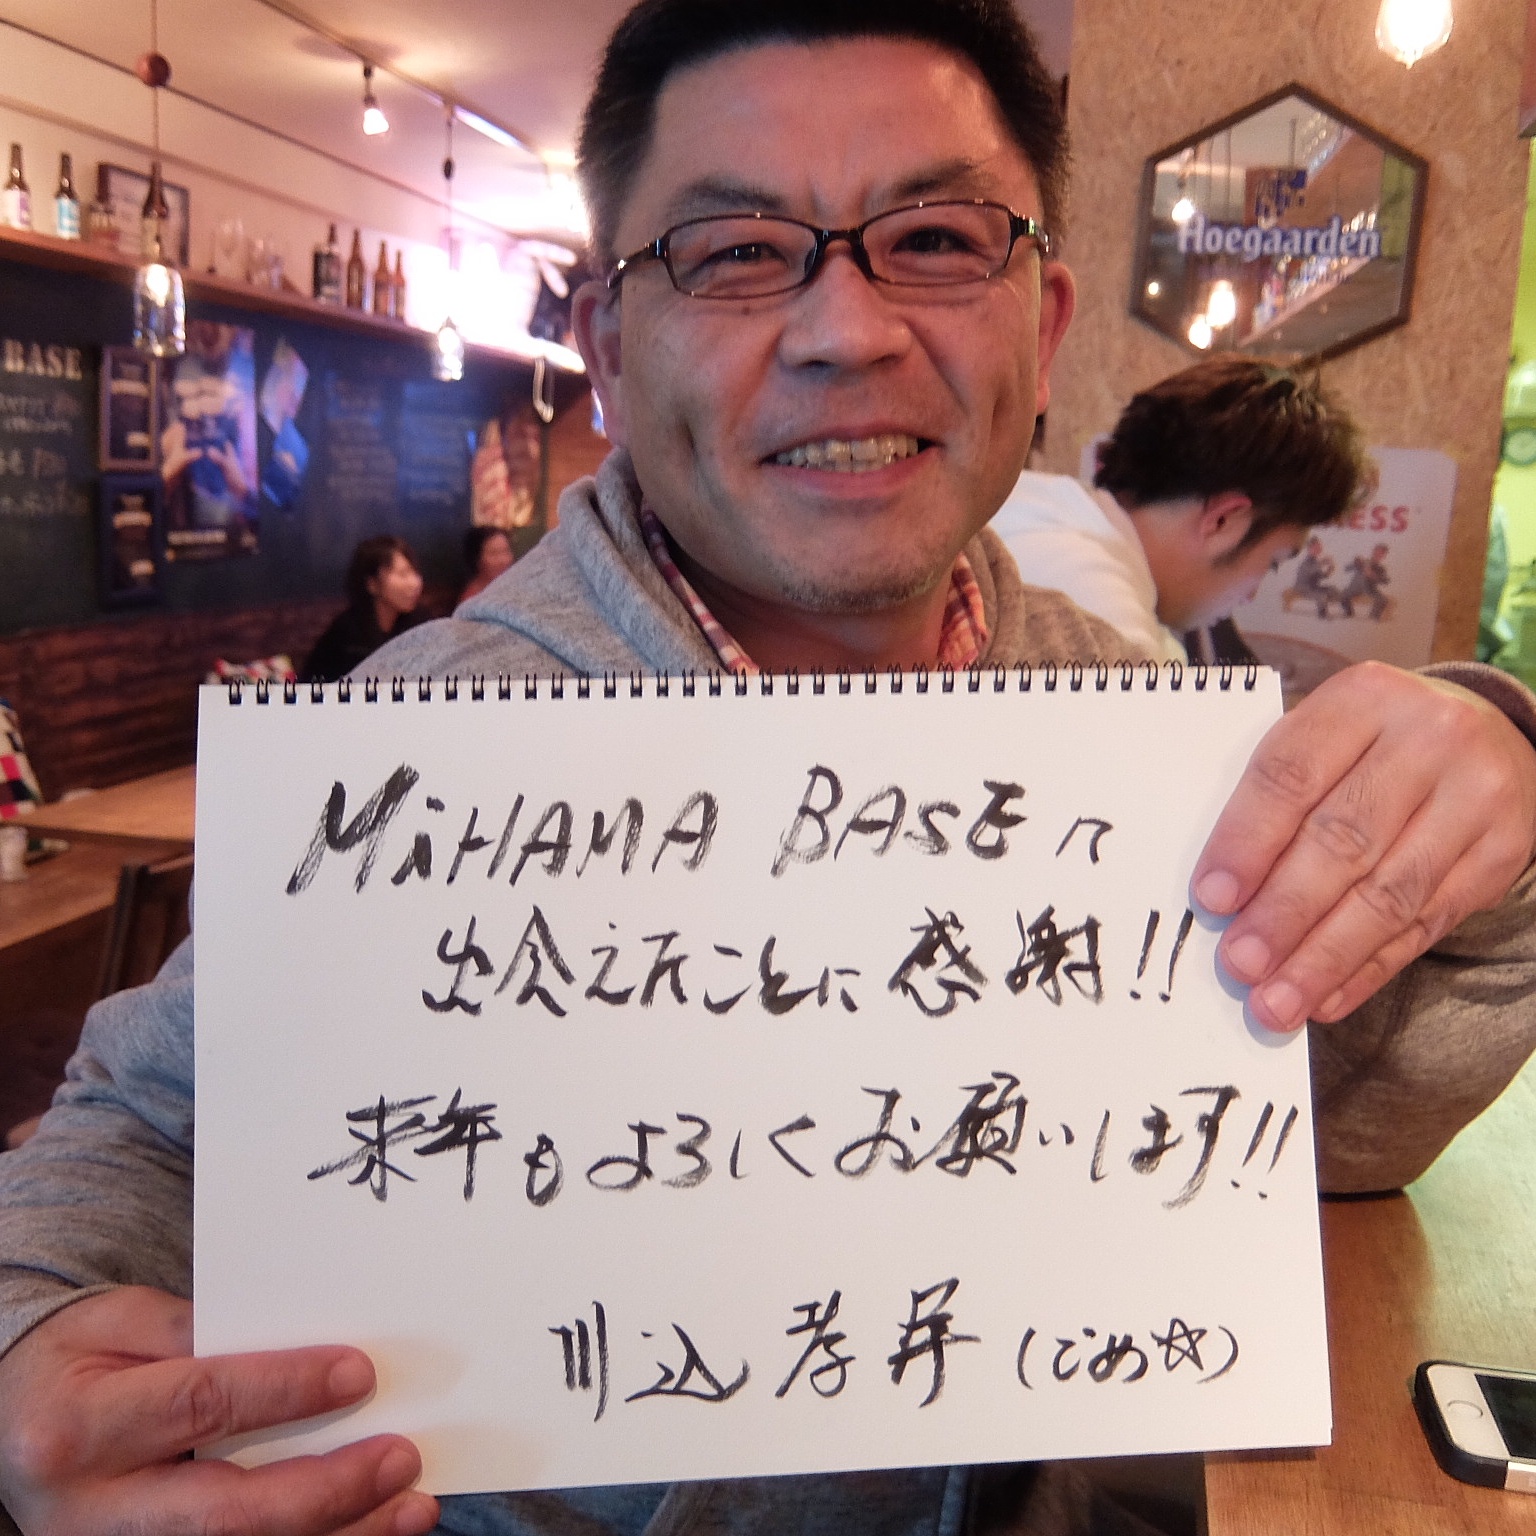 MiHAMA BASE で
出会えたことに感謝!!
来年もよろしくお願いします!!
川込 孝昇 (ごめ☆)
Hoegaarden
BASE